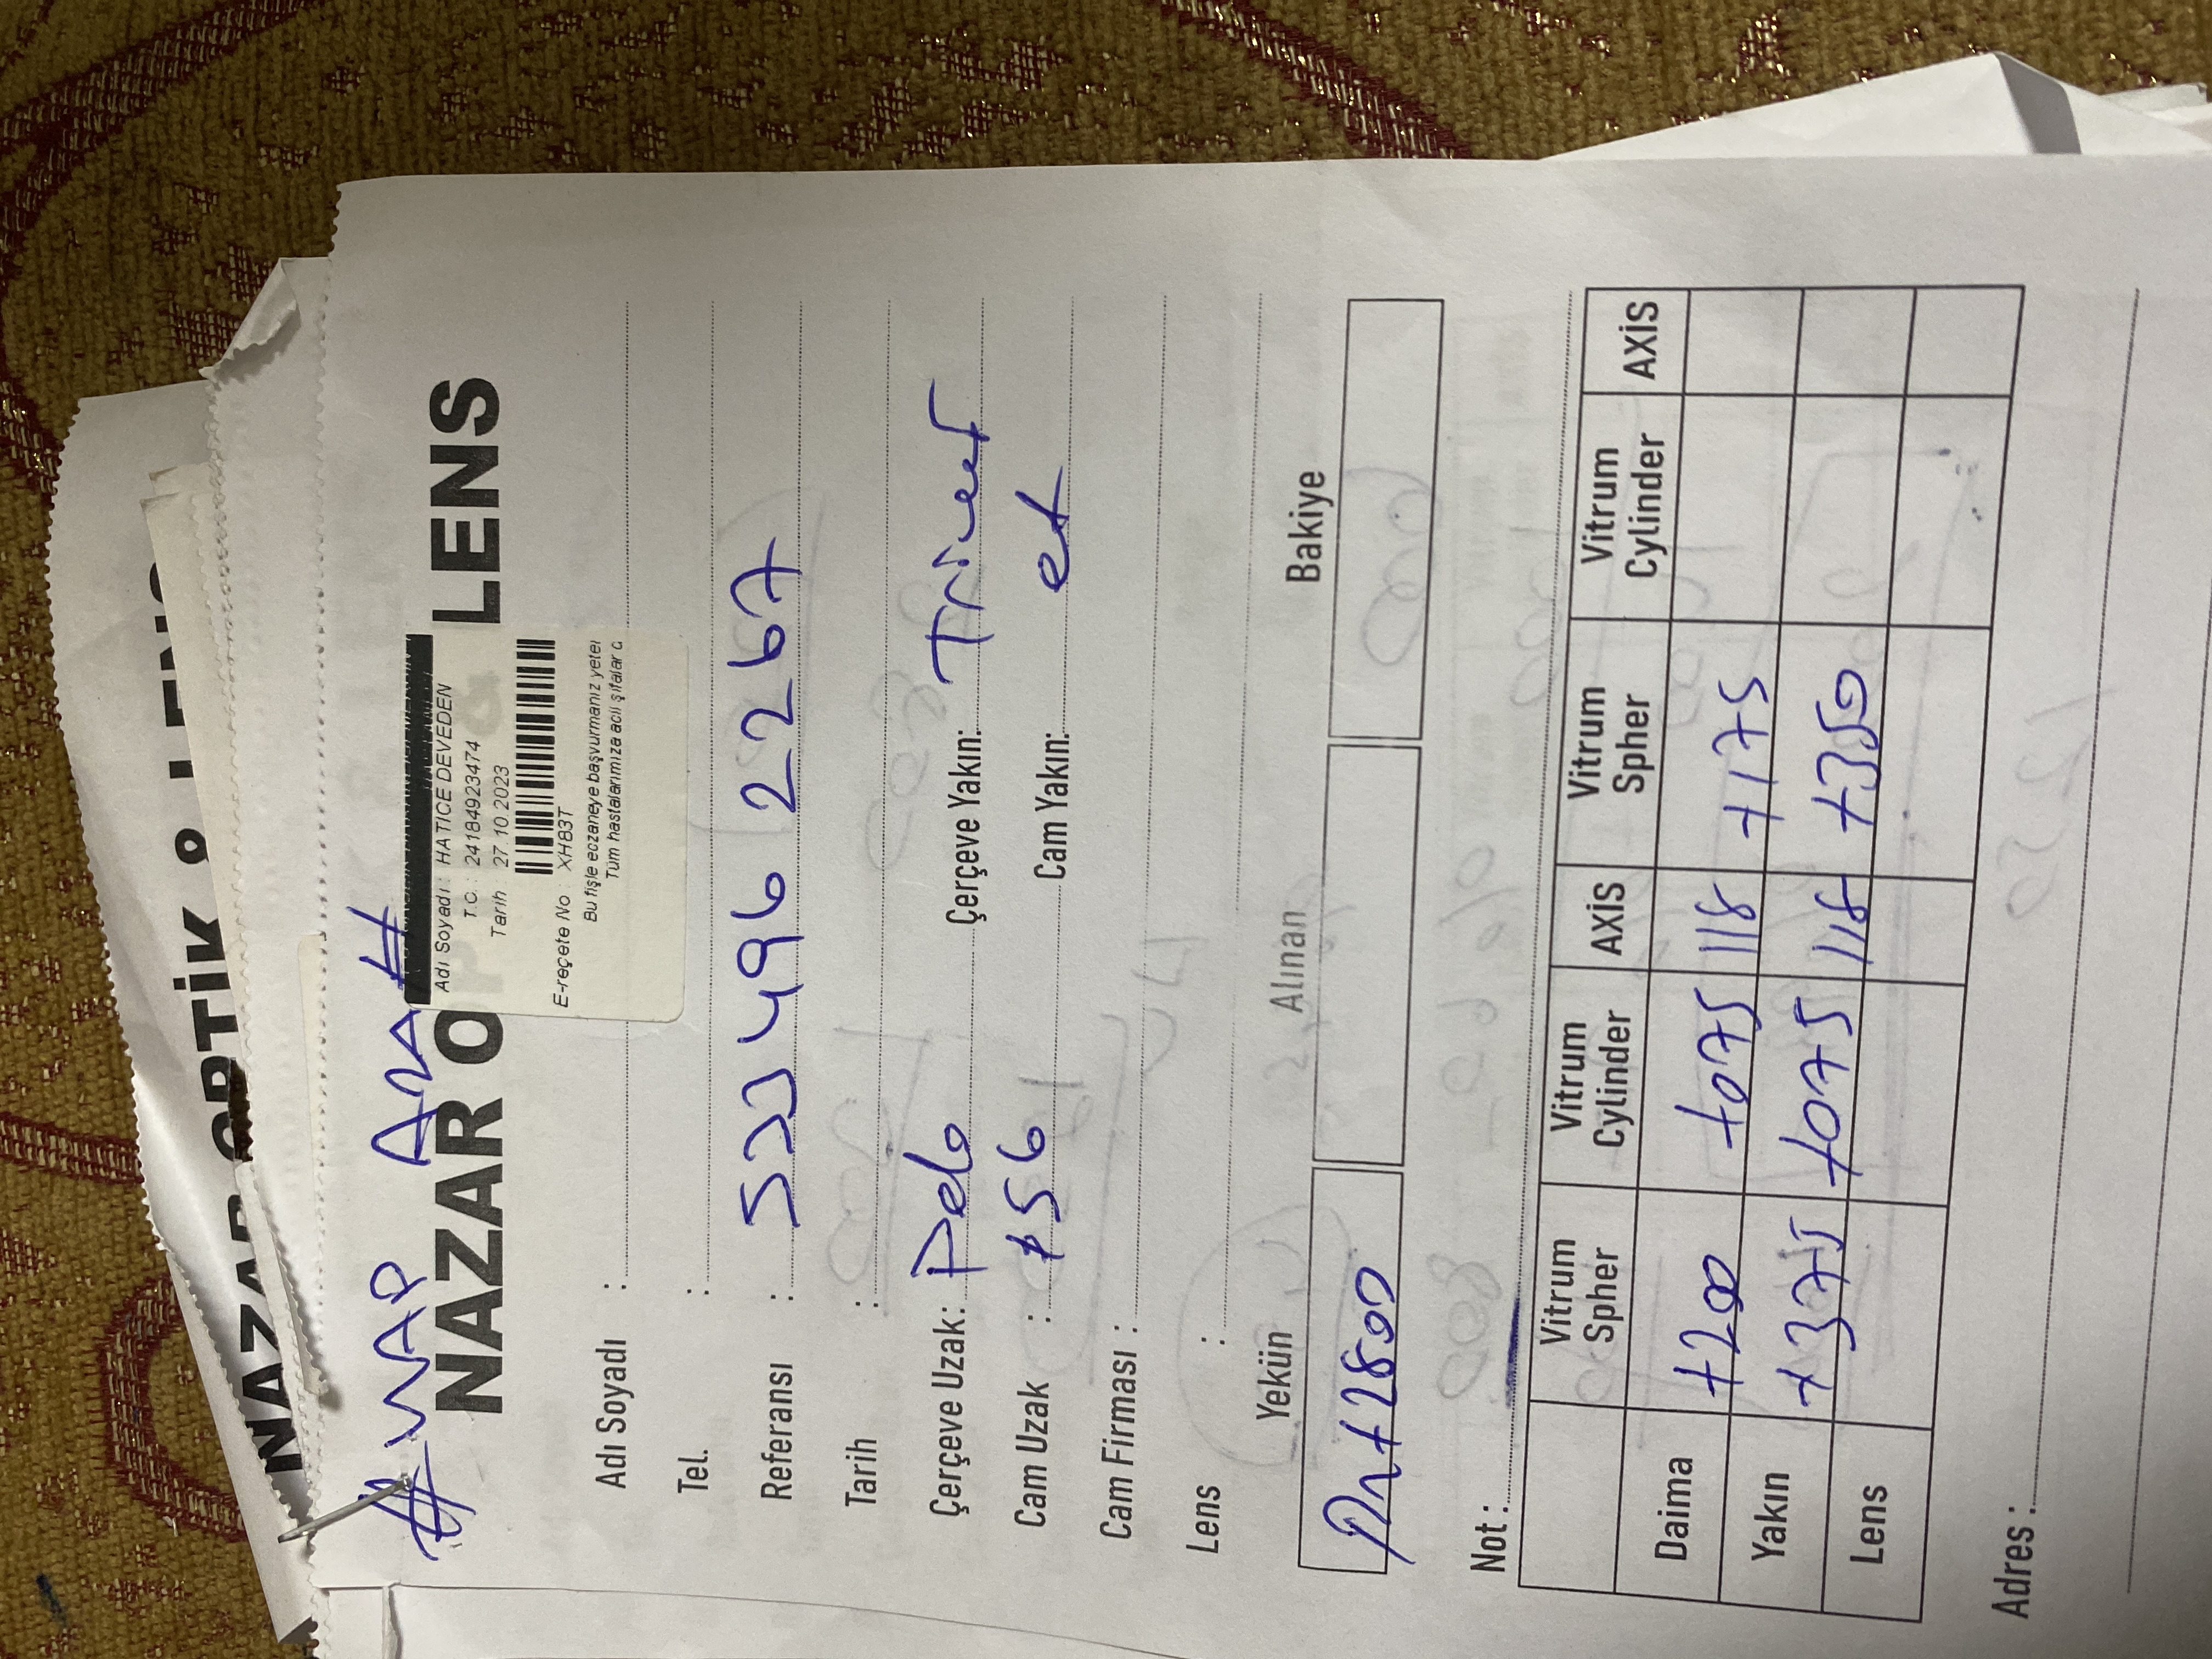 NAZAR OPTİK & LENS
# WAP ARA #
NAZAR OP & LENS
Adı Soyadı : HATICE DEVEDEN
T.C. : 24184923474
Tarih : 27.10.2023
E-reçete No : XH83T
Bu fişle eczaneye başvurmanız yeter
Tüm hastalarımıza acil şifalar d
Adı Soyadı :
Tel. :
Referansı : 533 496 2267
Tarih :
Çerçeve Uzak: Çerçeve Yakın:
Cam Uzak : 156 Cam Yakın: et
Cam Firması :
Lens :
Yekün Alınan Bakiye
+2800
Not :
Vitrum Spher Vitrum Cylinder AXİS Vitrum Spher Vitrum Cylinder AXİS
Daima +200 +075 118 +175
Yakın +375 +075 118 +350
Lens
Adres :